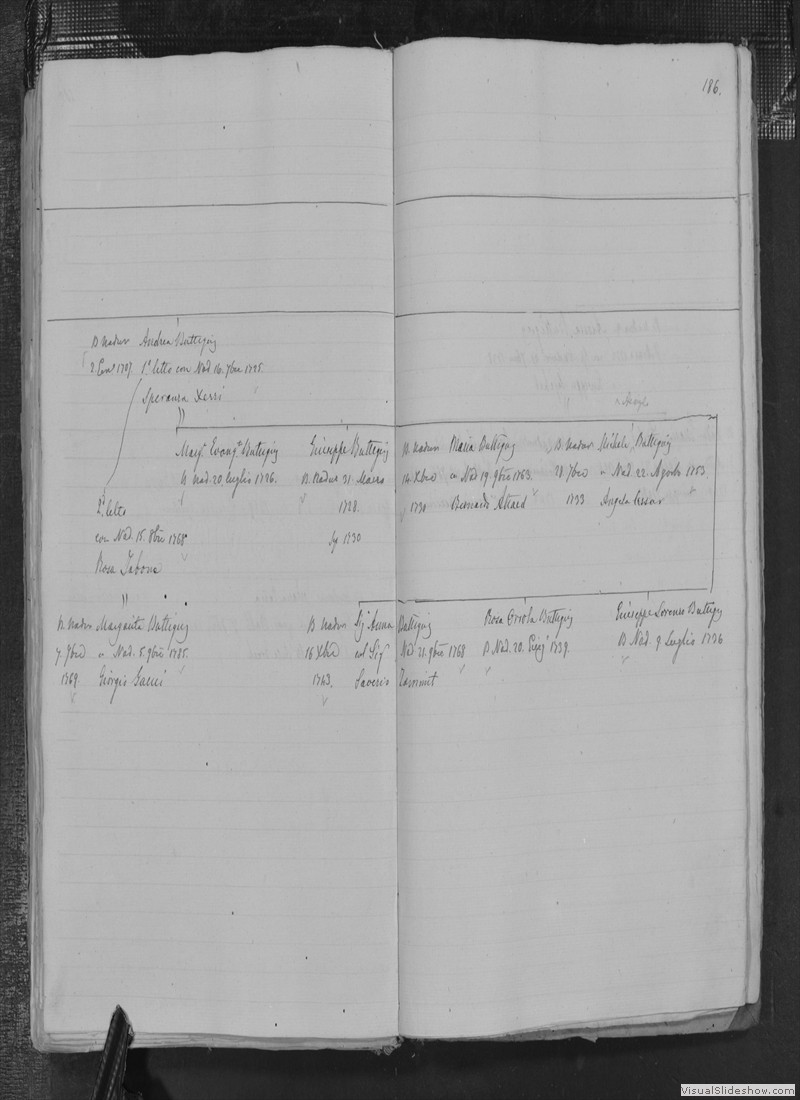 186.
B. Nadur Andrea Buttigieg
2. Genº 1707. 1º letto con Nad. 16. 7bre 1725.
Speranza Xerri
Margª Evangª Buttigieg
B. Nad. 20. Luglio 1726.
Giuseppe Buttigieg
B. Nadur 31. Marzo
1728.
1730
B. Nadur Maria Buttigieg
14. Xbre in Nad. 19. 9bre 1763.
1730 Bernardo Attard
B. Nadur Michele Buttigieg
28. 7bre in Nad. 22. Agosto 1753.
1733 Angela
2º letto
con Nad. 15. 8bre 1768
Rosa Tabone
B. Nadur Margarita Buttigieg
7. 7bre in Nad. 5. 9bre 1785.
1769. Giorgio Gauci
B. Nadur Sigª Anna Buttigieg
16 Xbre col Sigr Nad. 21. 9bre 1768
1743. Saverio Zammit
Rosa Orsola Buttigieg
B. Nad. 20. Giugº 1739.
Giuseppe Lorenzo Buttigieg
B. Nad. 9 Luglio 1736
VisualSlideshow.com